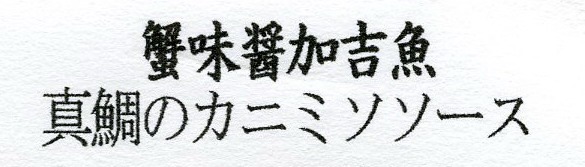 蟹味醤加吉魚
真鯛のカニミソソース